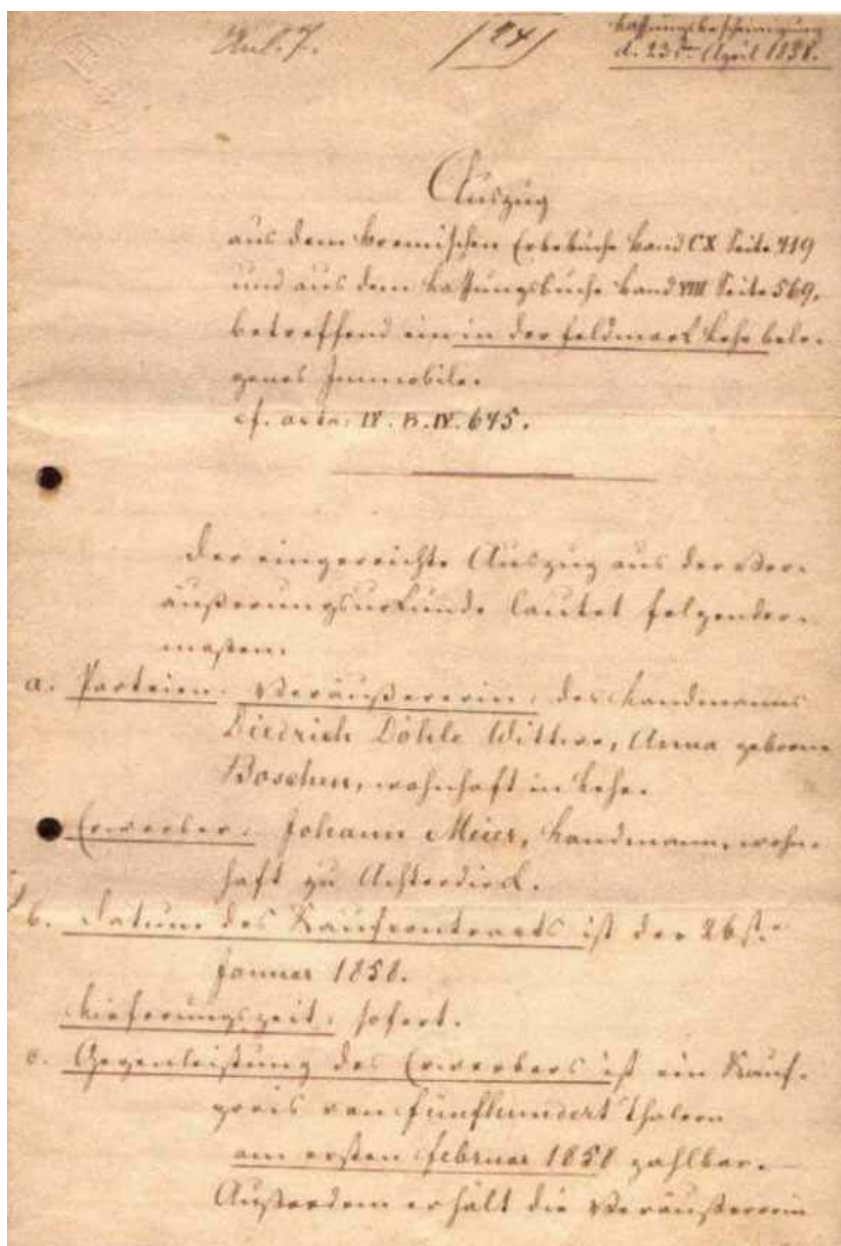 Anl. 7.
/24/
Lassungsbescheinigung
d. 23sten April 1858.
Auszug
aus dem bremischen Erbebuche Band CX Seite 419
und aus dem Lassungsbuche Band VIII Seite 569,
betreffend ein in der Feldmark Lehe bele-
genes Immobile.
cf. acta: IV. B. IV. 645.
Der eingereichte Auszug aus der Ver-
äußerungsurkunde lautet folgender-
maßen:
a. Parteien. Veräußererin: des Landmanns
Diedrich Döhle Wittwe, Anna geborne
Boschen, wohnhaft in Lehe.
Erwerber: Johann Meier, Landmann, wohn-
haft zu Achterdiek.
b. Datum des Kaufcontracts ist der 26st.
Januar 1858.
Lieferungszeit: sofort.
c. Gegenleistung des Erwerbers ist ein Kauf-
preis von fünfhundert Thalern
am ersten Februar 1858 zahlbar.
Außerdem erhält die Veräußererin